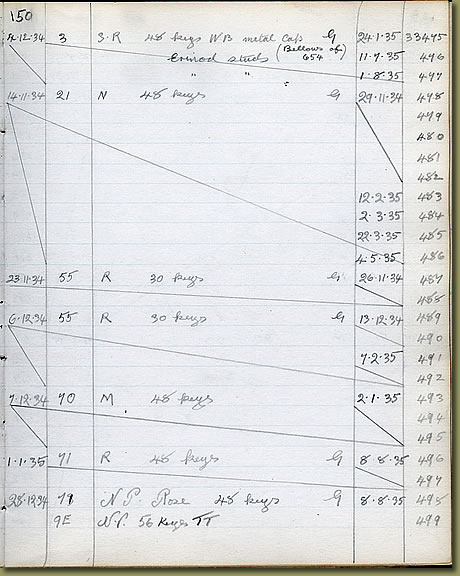 150
12.34 3 S.R 48 keys W B metal Caps G 24.1.35 33475
Ermiod studs (Bellows of 654 11.7.35 476
" " 1.8.35 477
14.11.34 21 N 48 keys G 29.11.34 478
479
480
481
482
12.2.35 483
2.3.35 484
22.3.35 485
4.5.35 486
23.11.34 55 R 30 keys G 26.11.34 487
488
6.12.34 55 R 30 keys G 13.12.34 489
490
7.2.35 491
492
7.12.34 70 M 48 keys 2.1.35 493
494
495
1.1.35 71 R 48 keys G 8.8.35 496
497
28.12.34 71 N.P. Rose 48 keys G 8.8.35 498
9E N.P. 56 Keys TT 499